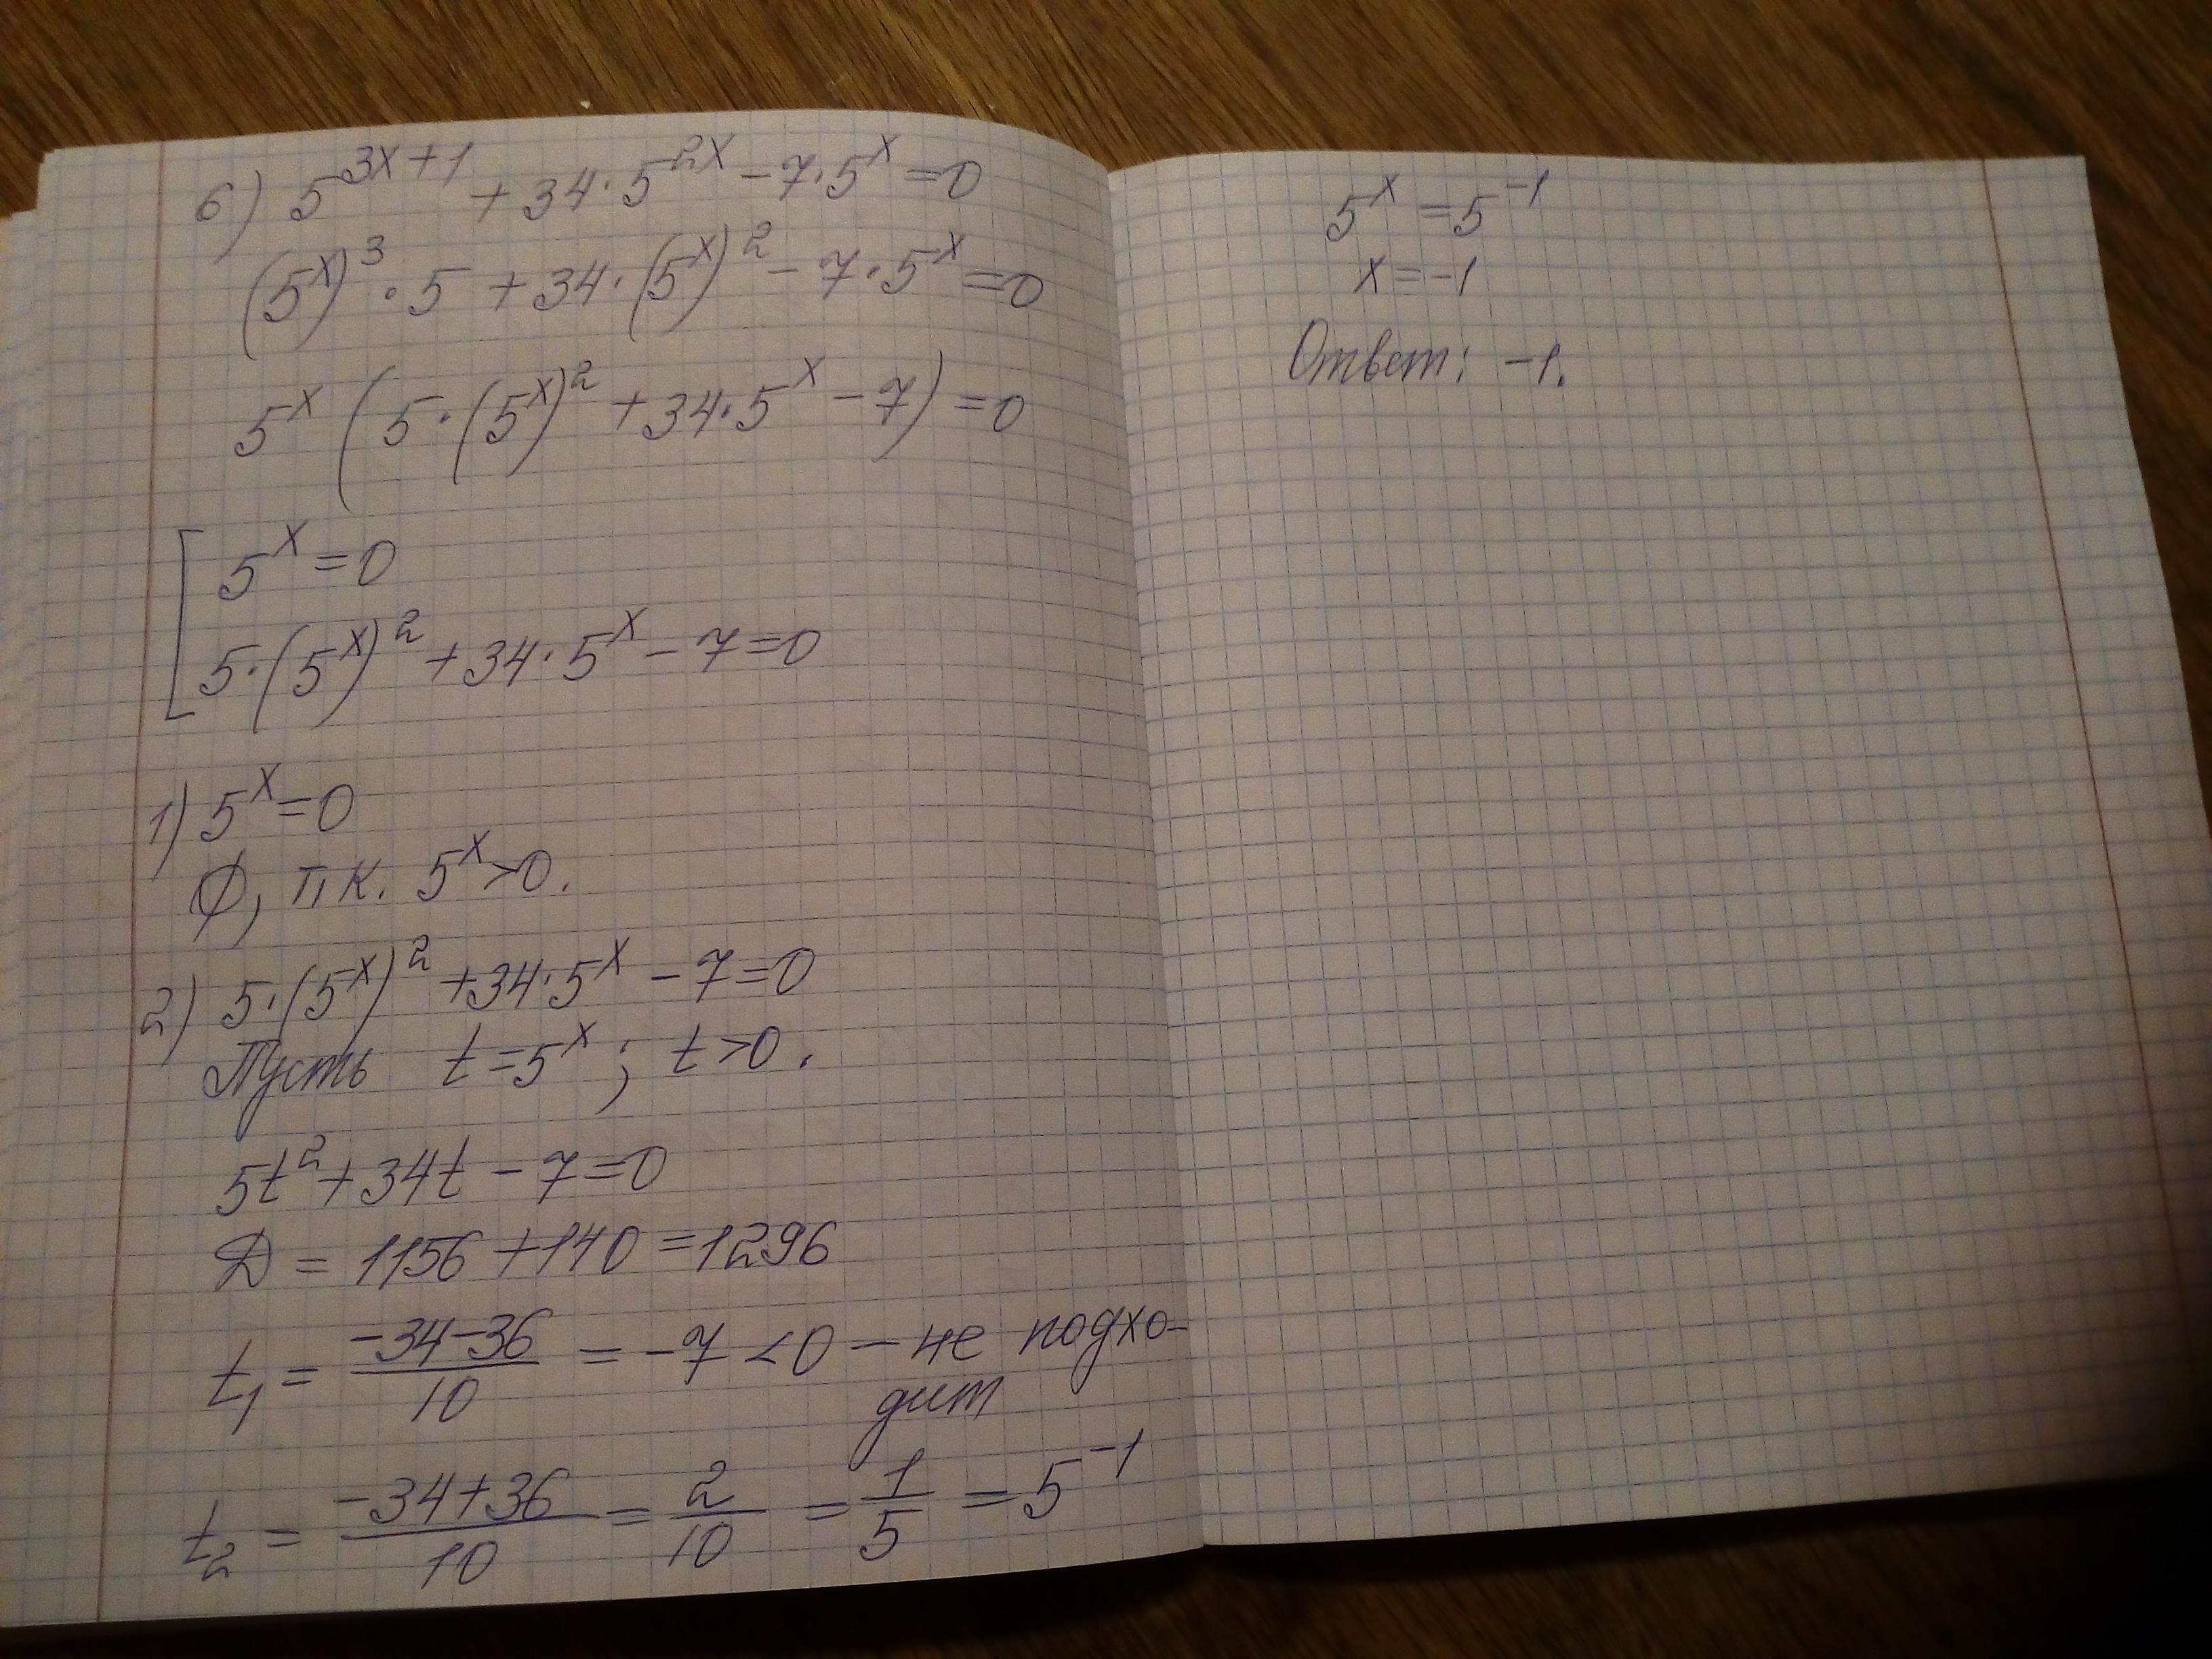 6) 5^{3x+1} + 34·5^{2x} − 7·5^x = 0
(5^x)^3 · 5 + 34·(5^x)^2 − 7·5^x = 0
5^x (5·(5^x)^2 + 34·5^x − 7) = 0
[ 5^x = 0
5·(5^x)^2 + 34·5^x − 7 = 0
1) 5^x = 0
∅, т.к. 5^x > 0.
2) 5·(5^x)^2 + 34·5^x − 7 = 0
Пусть t = 5^x ; t > 0.
5t^2 + 34t − 7 = 0
D = 1156 + 140 = 1296
t_1 = \frac{−34−36}{10} = −7 < 0 − не подхо-
дит
t_2 = \frac{−34+36}{10} = \frac{2}{10} = \frac{1}{5} = 5^{−1}
5^x = 5^{−1}
x = −1
Ответ: −1.